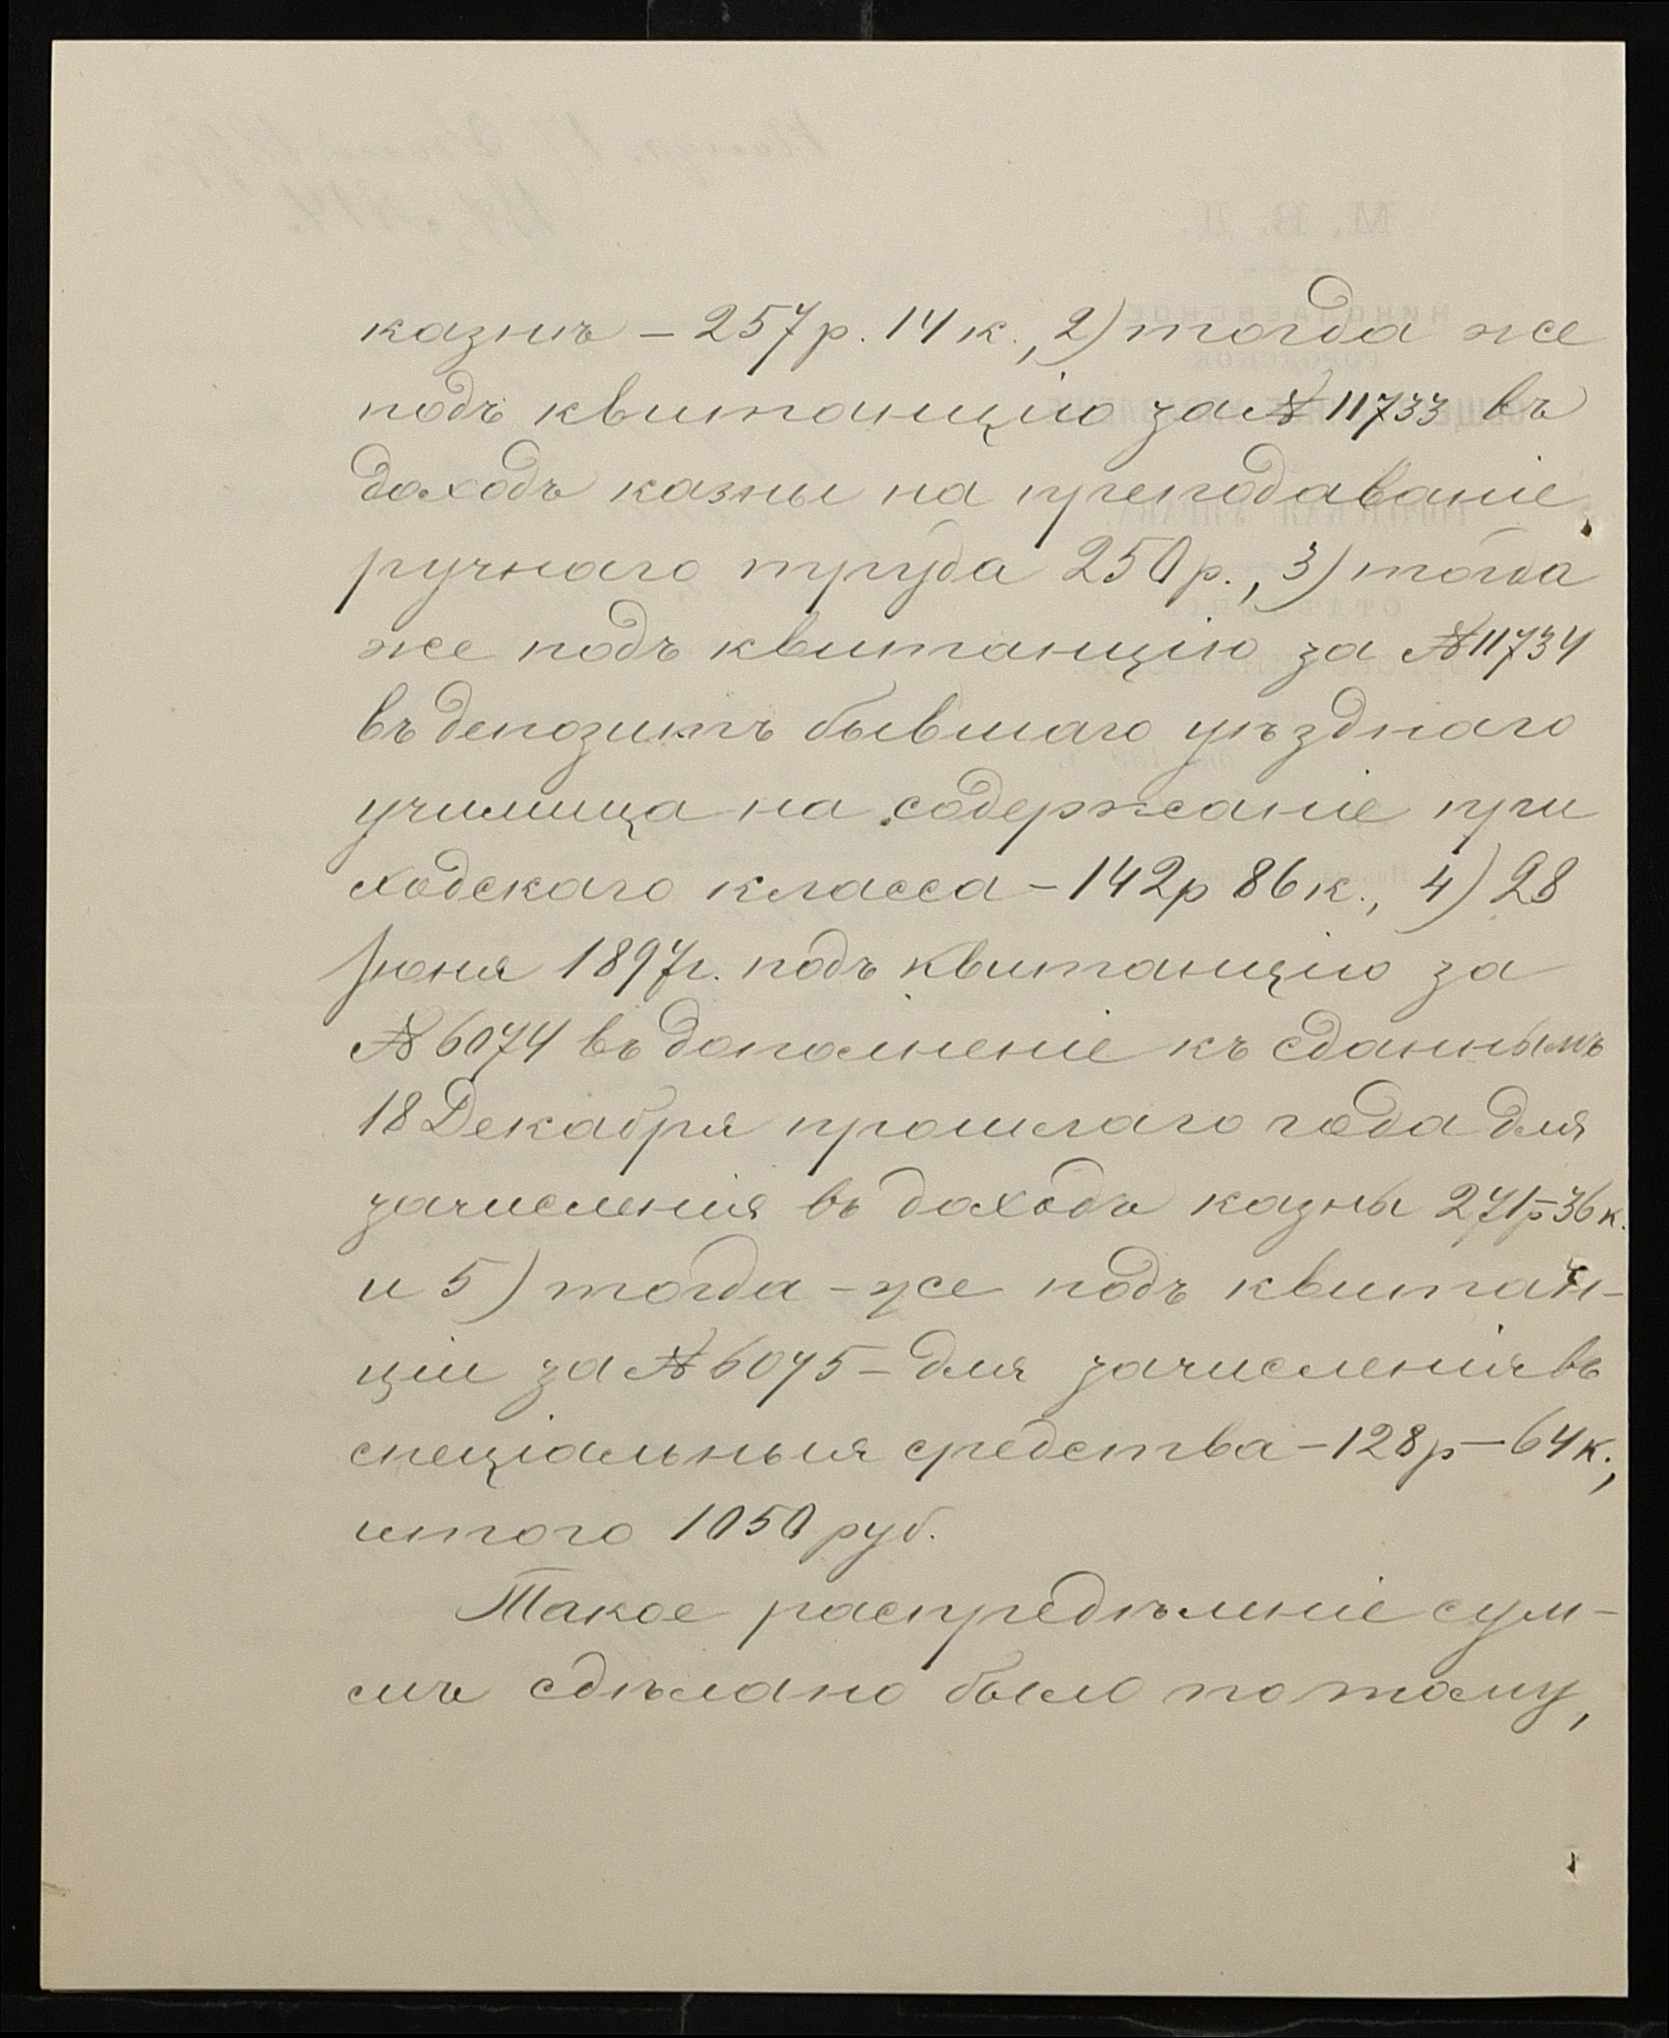 казнѣ – 257 р. 14 к., 2) тогда же
подъ квитанцію за № 11733 въ
доходъ казны на преподаваніе
ручнаго труда 250 р., 3) тогда
же подъ квитанцію за № 11734
въ депозитъ бывшаго уѣзднаго
училища на содержаніе при
ходскаго класса – 142 р 86 к., 4) 28
Іюня 1897 г. подъ квитанцію за
№ 6074 въ дополненіе къ сданнымъ
18 Декабря прошлаго года для
зачисленія въ доходъ казны 271 р – 36 к.
и 5) тогда – же подъ квитан-
ціи за № 6075 – для зачисленія въ
спеціальныя средства – 128 р – 64 к.,
итого 1050 руб.
Такое распредѣленіе сум-
мъ сдѣлано было по тому,
М. В. Д.
НИКОЛАЕВСКОЕ
ГОРОДСКОЕ